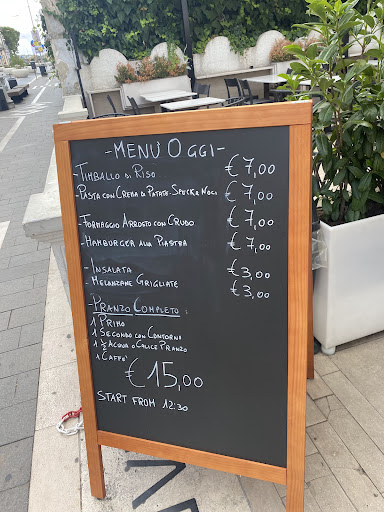 -MENÙ OGGI-
-TIMBALLO DI RISO €7,00
-PASTA CON CREMA DI PATATE-SPECK E NOCI €7,00
-FORMAGGIO ARROSTO CON CRUDO €7,00
-HAMBURGER ALLA PIASTRA €7,00
-INSALATA €3,00
-MELANZANE GRIGLIATE €3,00
PRANZO COMPLETO:
1 PRIMO
1 SECONDO CON CONTORNO
1 ½ ACQUA O CALICE PRANZO
1 CAFFE'
€15,00
START FROM 12:30